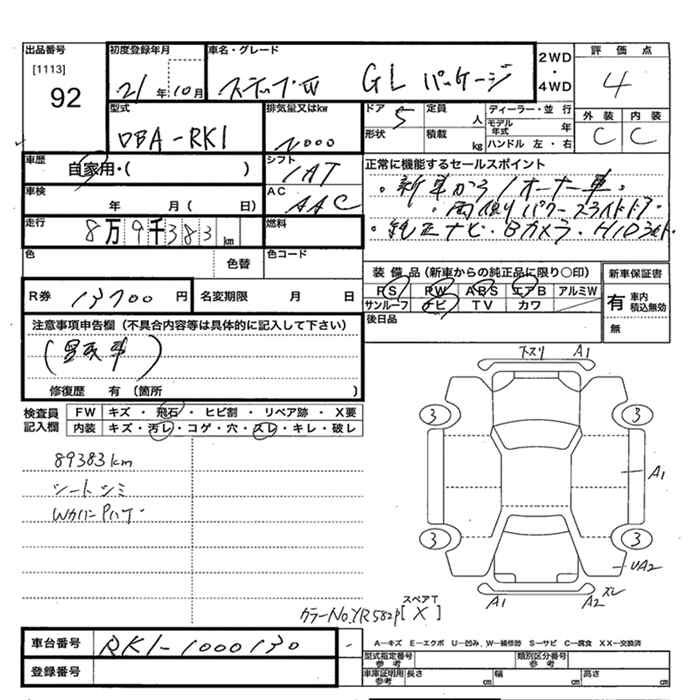 出品番号 初度登録年月 車名・グレード 2WD・4WD 評価点
[1113]
92
21年10月 ステップW GLパッケージ 4
型式 排気量又はkw ドア 5 定員 人 ディーラー・並行 外装 内装
DBA-RK1 2000 形状 積載 kg モデル年式 年 C C
ハンドル 左・右
車歴 自家用・( ) シフト IAT 正常に機能するセールスポイント
・新車から1オーナー車。
車検 年 月(日) AC AAC ・両側パワースライドドア
走行 8万9千383km 燃料 ・純正ナビ・Bカメラ・HID
色 色替 色コード
装備品(新車からの純正品に限り○印) 新車保証書
PS PW ABS エアB アルミW 有 車内積込無効
サンルーフ ナビ TV カワ 無
R券 13700円 名変期限 月 日 後日品
注意事項申告欄(不具合内容等は具体的に記入して下さい)
修復歴 有(箇所 )
検査員記入欄 FW キズ・飛石・ヒビ割・リペア跡・X要
内装 キズ・汚レ・コゲ・穴・スレ・キレ・破レ
89383km
シートシミ
下スリ A1
3 3
A1
3 3
UA2
スレ
A1 A2
カラーNo.YR582P スペアT [X]
車台番号 RK1-1000130
登録番号
A-キズ E-エクボ U-凹み W-補修跡 S-サビ C-腐食 XX-交換済
型式指定番号 参考 類別区分番号 参考
車庫証明用 参考 長さ cm 幅 cm 高さ cm